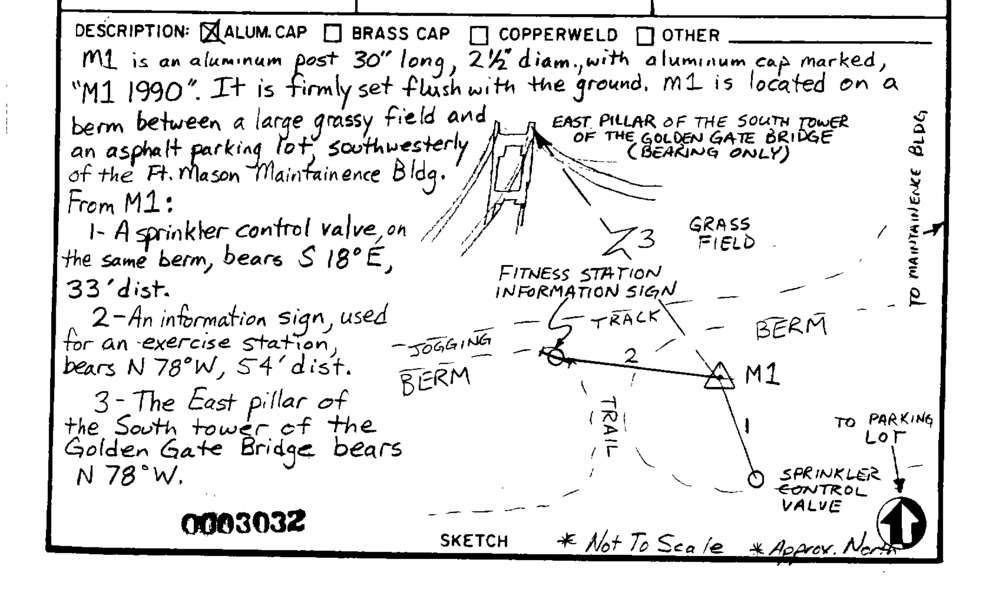 DESCRIPTION: ☒ ALUM. CAP ☐ BRASS CAP ☐ COPPERWELD ☐ OTHER
M1 is an aluminum post 30" long, 2½" diam., with aluminum cap marked,
"M1 1990". It is firmly set flush with the ground. M1 is located on a
berm between a large grassy field and
an asphalt parking lot, southwesterly
of the Ft. Mason Maintainence Bldg.
From M1:
1- A sprinkler control valve, on
the same berm, bears S 18° E,
33' dist.
2- An information sign, used
for an exercise station,
bears N 78° W, 54' dist.
3- The East pillar of
the South tower of the
Golden Gate Bridge bears
N 78° W.
0003032
EAST PILLAR OF THE SOUTH TOWER
OF THE GOLDEN GATE BRIDGE
(BEARING ONLY)
3
GRASS
FIELD
TO MAINTAINENCE BLDG
FITNESS STATION
INFORMATION SIGN
JOGGING TRACK
BERM
BERM
2
M1
TRAIL
1
TO PARKING
LOT
SPRINKLER
CONTROL
VALVE
SKETCH * Not To Scale * Approx. North